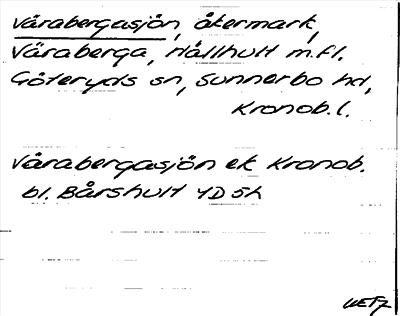 Vårabergasjön, åkermark,
Våraberga, Hållhult m.fl.
Göteryds sn, Sunnerbo hd,
Kronob.l.
Vårabergasjön ek Kronob.
bl. Bårshult 4D5h